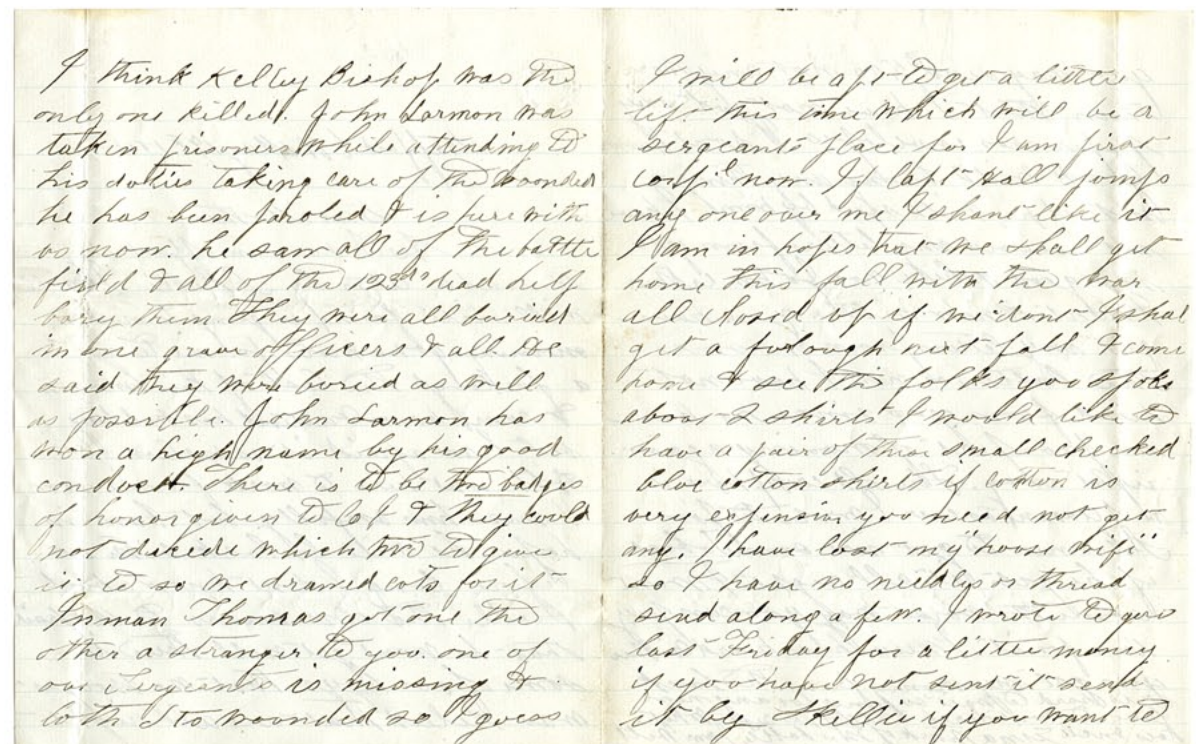 I think Kelley Bishop was the
only one killed. John Larmon was
taken prisoners while attending to
his duties taking care of the wounded
he has been paroled & is here with
us now. he saw all of the battle
field & all of the 123ds dead help
bury them They were all buried
in one grave officers & all. He
said they were buried as well
as possible. John Larmon has
won a high name by his good
conduct. There is to be two badges
of honor given to Co & they could
not decide which two to give
it to so we drawed cuts for it
Inman Thomas got one the
other a stranger to you. one of
our Sergeants is missing &
both wounded so I guess
I will be apt to get a little
lift this time which will be a
sergeants place for I am first
corpl now. If Capt Hall jumps
any one over me I shant like it
I am in hopes that we shall get
home this fall with the war
all closed up if we dont I shal
get a furlough next fall & come
home & see the folks you spoke
about 2 shirts I would like to
have a pair of these small checked
blue cotton shirts if cotton is
very expensive you need not get
any. I have lost my "house wife"
so I have no needles or thread
send along a few. I wrote to you
last Friday for a little money
if you have not sent it send
it by Skellie if you want to